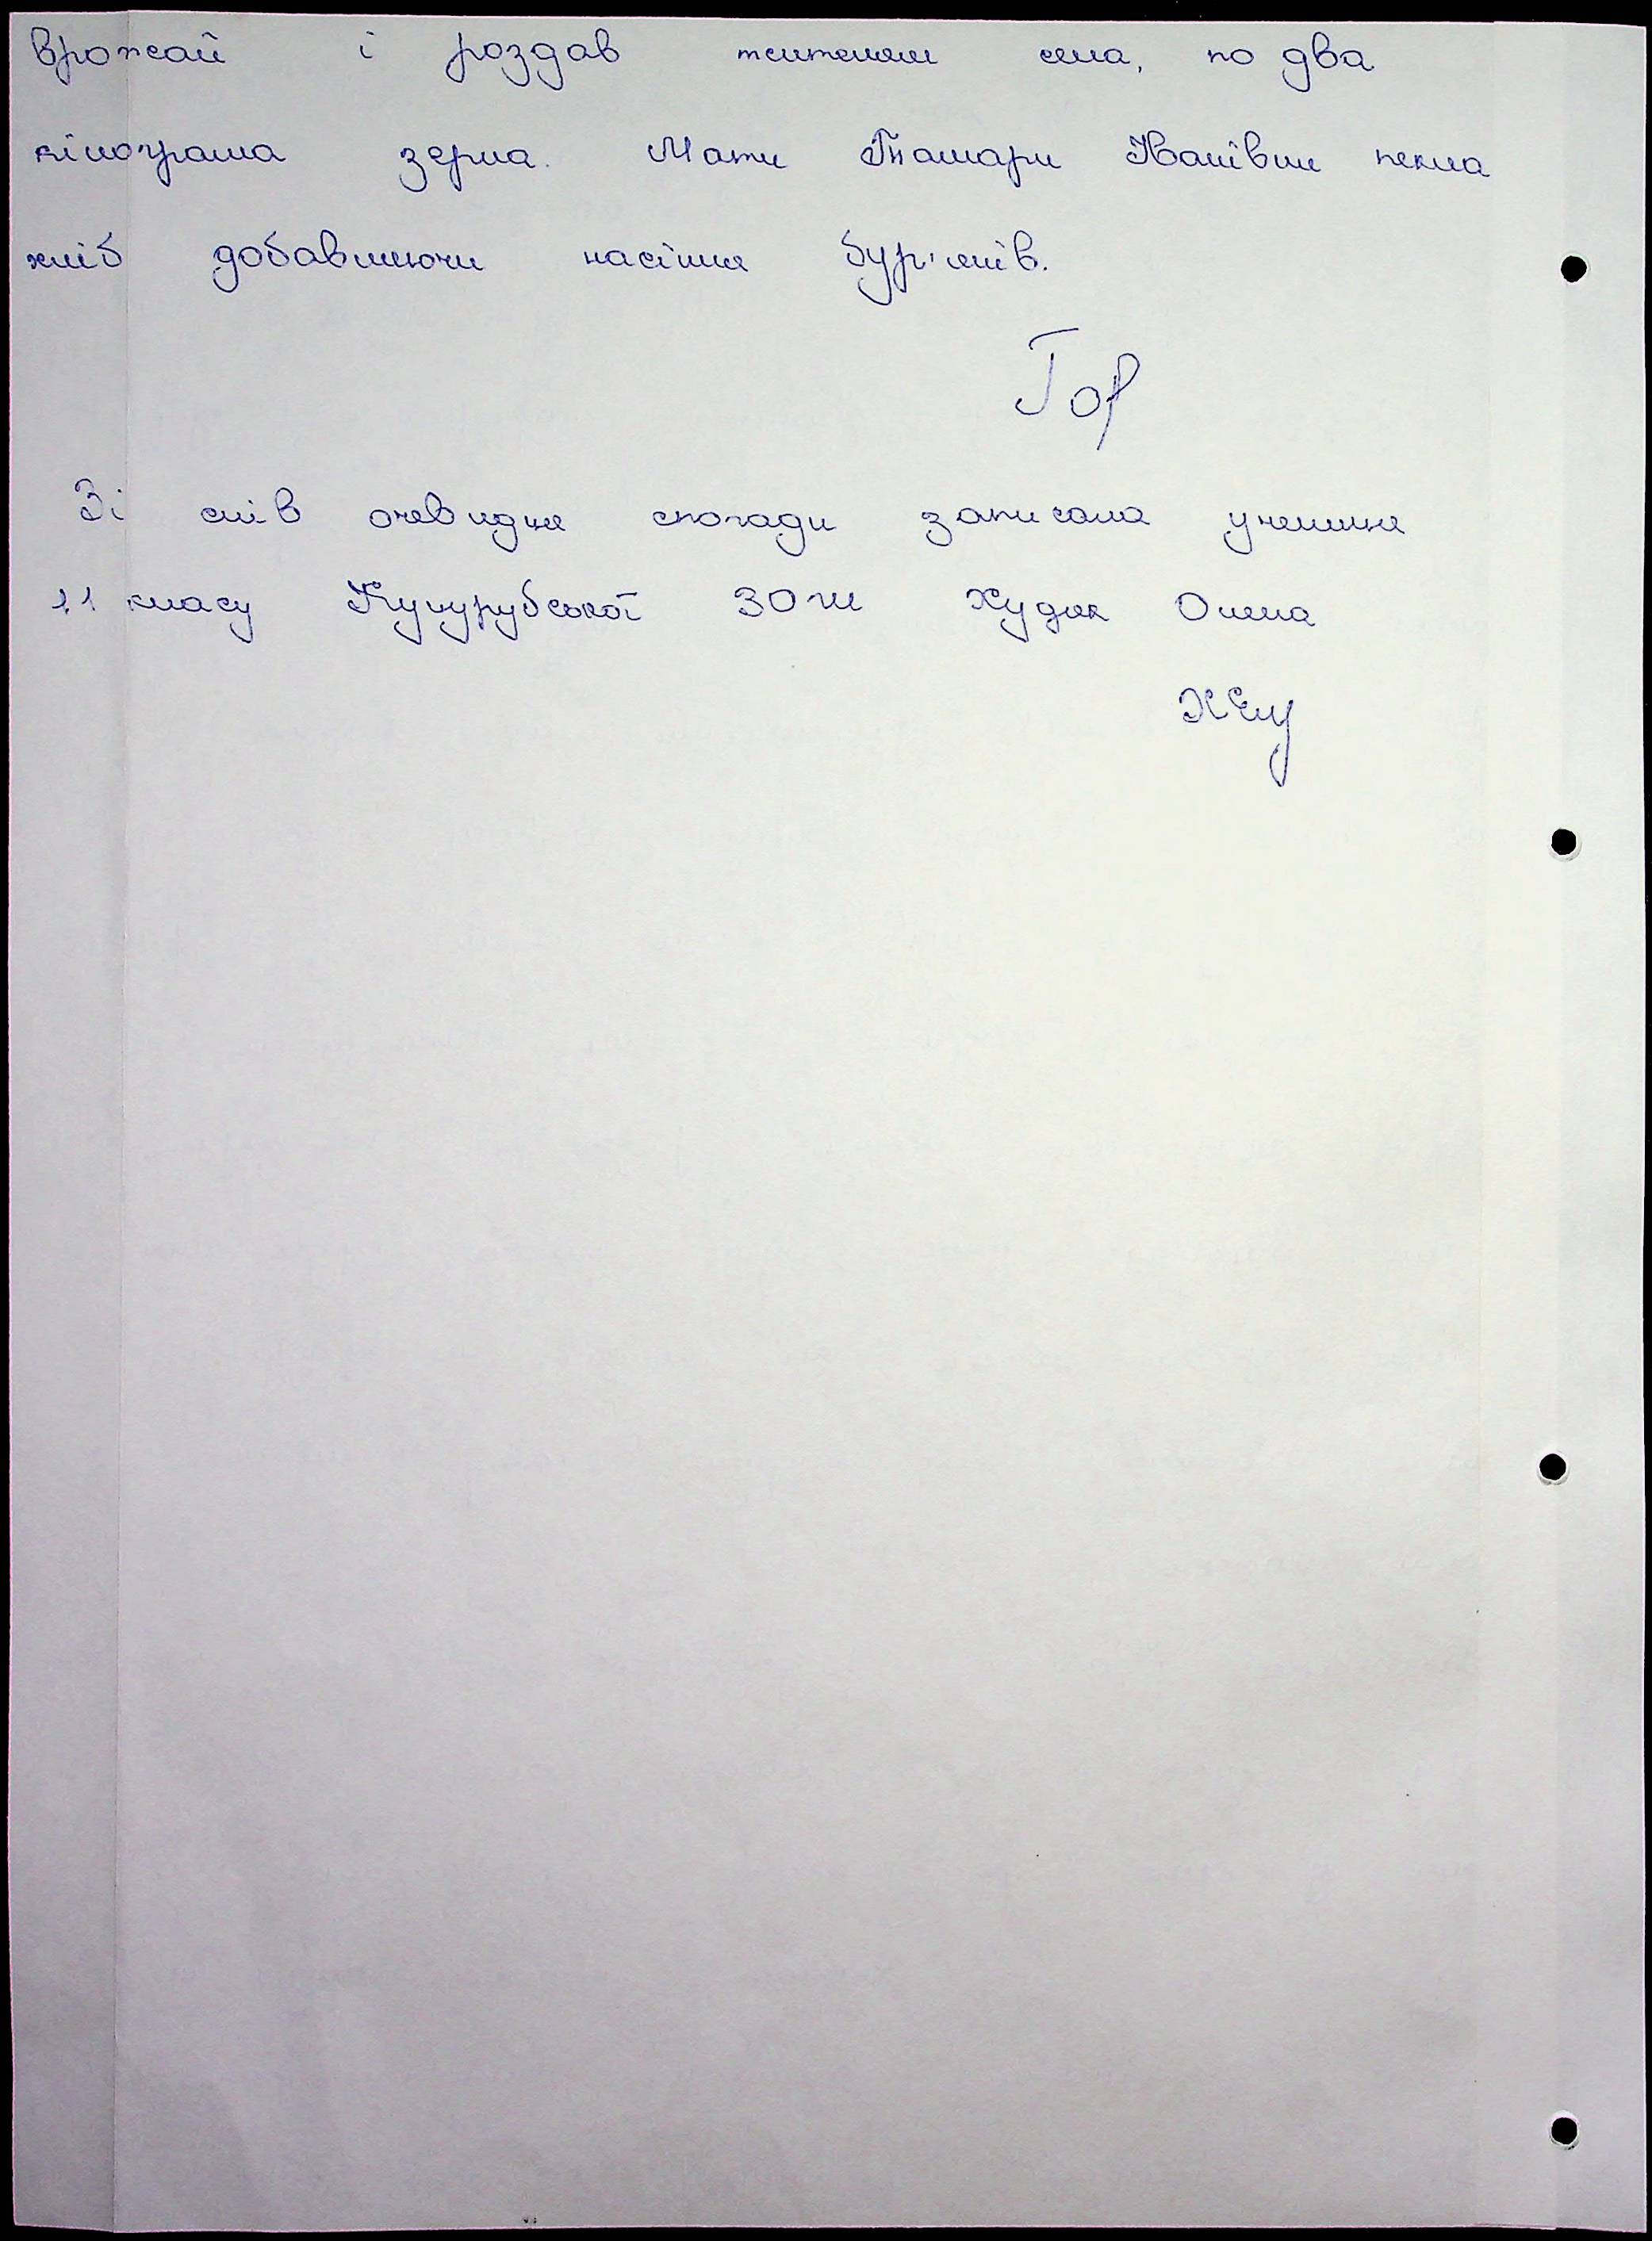 врожай і роздав жителям села, по два
кілограма зерна. Мати Тамари Іванівни пекла
хліб добавляючи насіння бур'янів.
Зі слів очевидця спогади записала учениця
11 класу Куцурубської ЗОШ Худяк Олена